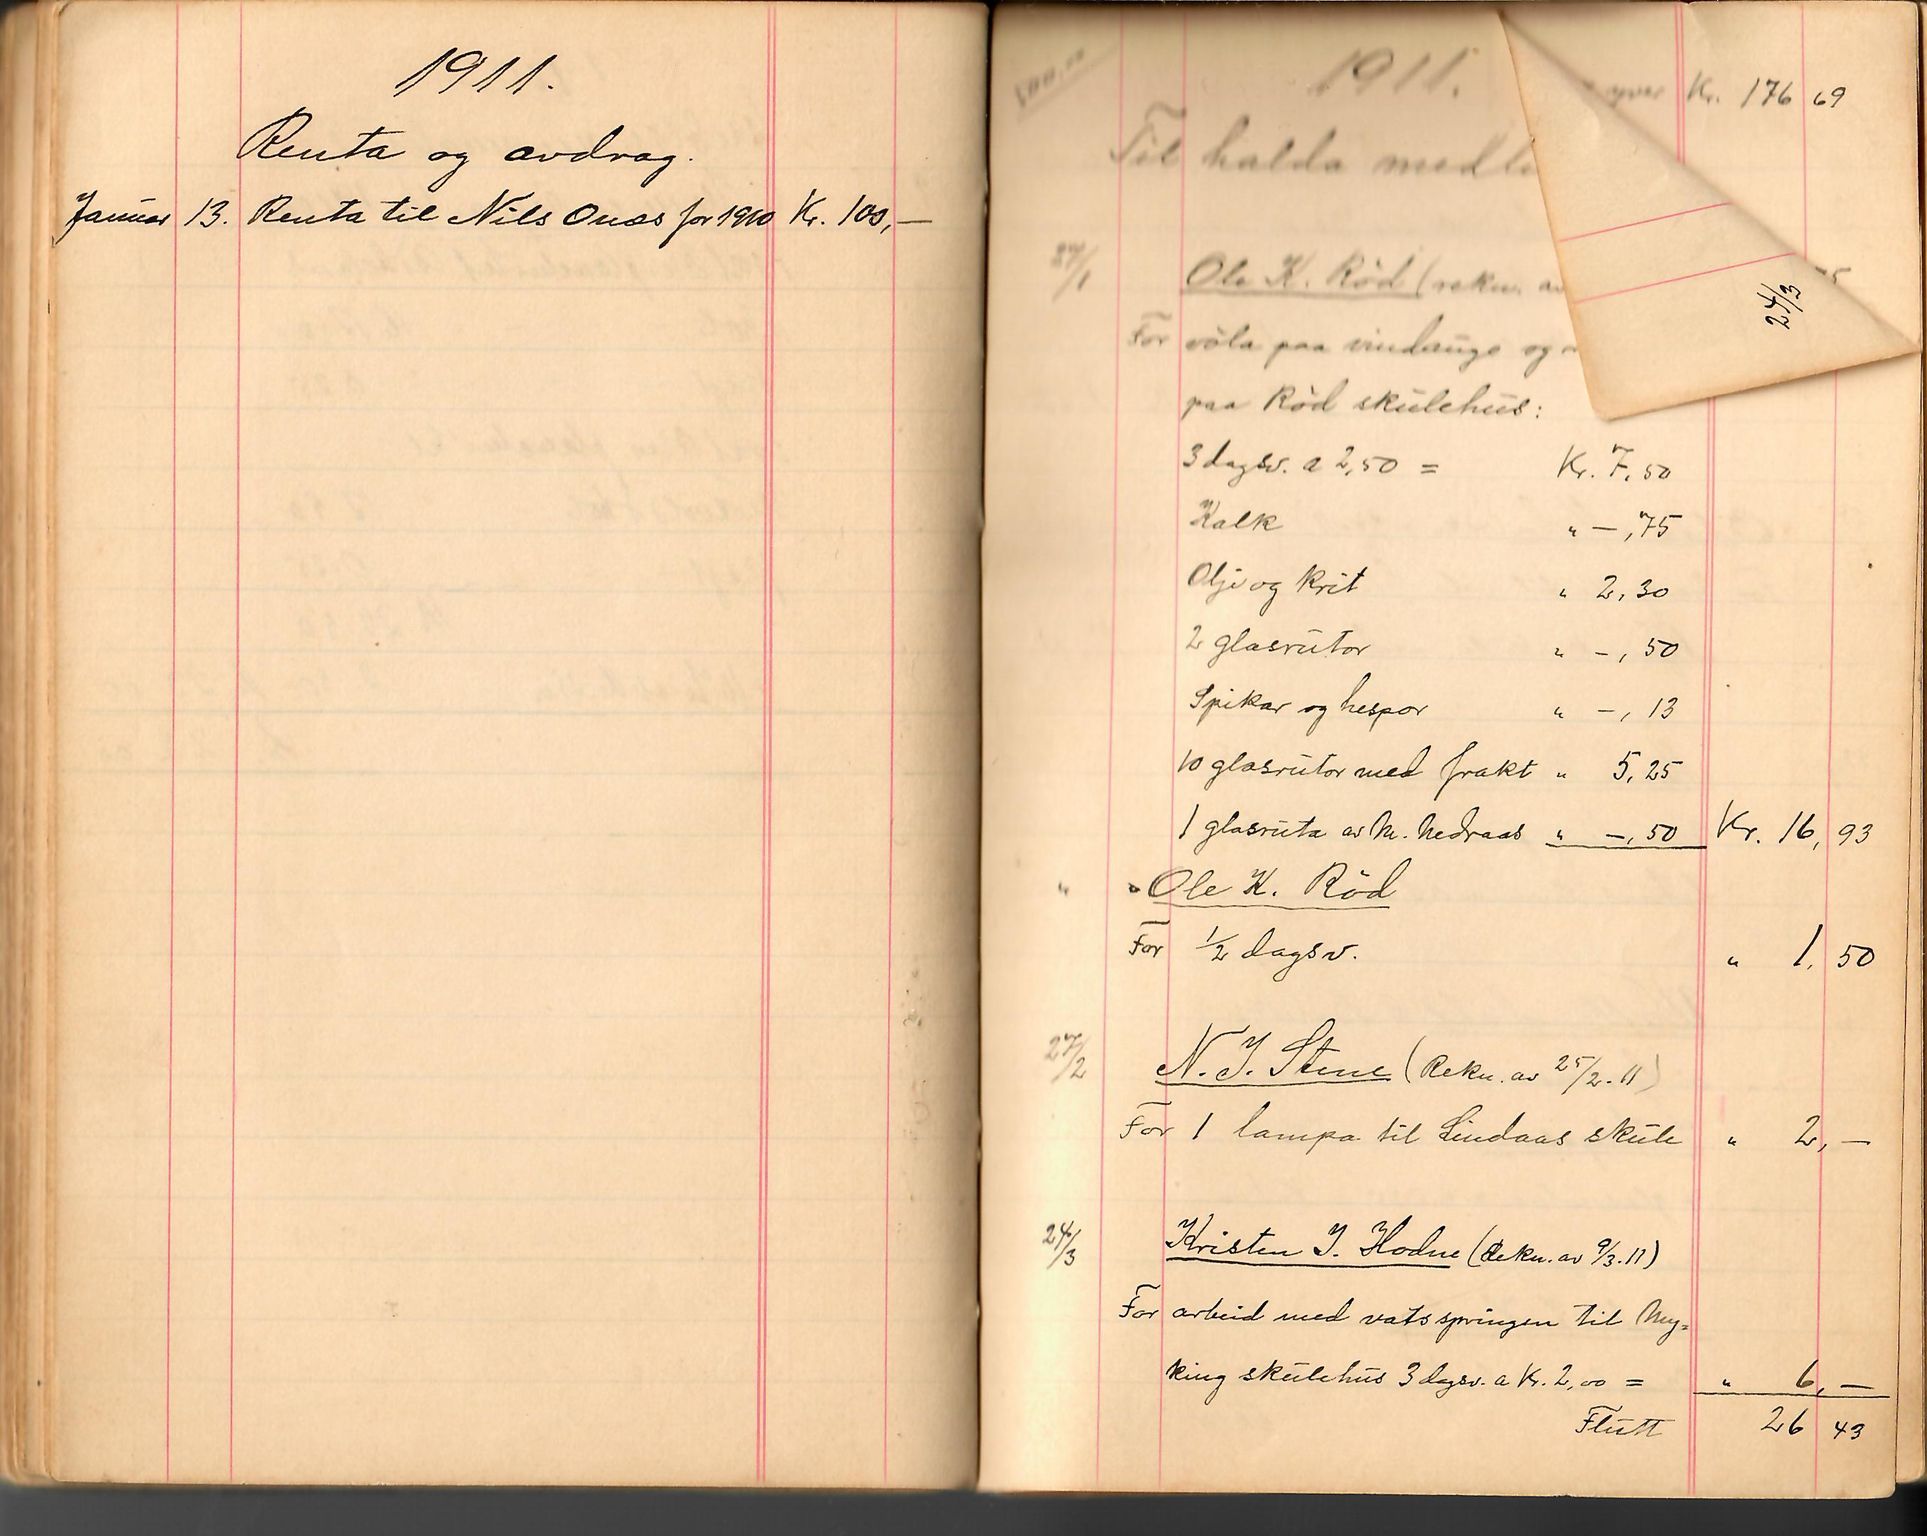 1911.
Renta og avdrag.
Januar 13. Renta til Nils Onæs for 1910 Kr. 100,—
1911.
yver Kr. 176 69
Til halda medl
24/1 Ole K. Röd (rekn. av
For völa paa vindauge og
paa Röd skulehus:
24/3
3 dagsv. a 2,50 = Kr. 7,50
Kalk " —,75
Olje og krit " 2,30
2 glasrutor " -, 50
Spikar og hespor " -, 13
10 glasrutor med frakt " 5,25
1 glasruta av M. Nedraas " —,50 Kr. 16, 93
" " Ole K. Röd
For 1/2 dagsv. " 1, 50
27/2 N. J. Stene (Rekn. av 25/2. 11)
For 1 lampa til Lindaas skule " 2, —
24/3 Kristen J. Hodne (Rekn. av 9/3. 11)
For arbeid med vatsspringen til My=
king skulehus 3 dagsv. a Kr. 2,00 = " 6, —
Flutt 26 43